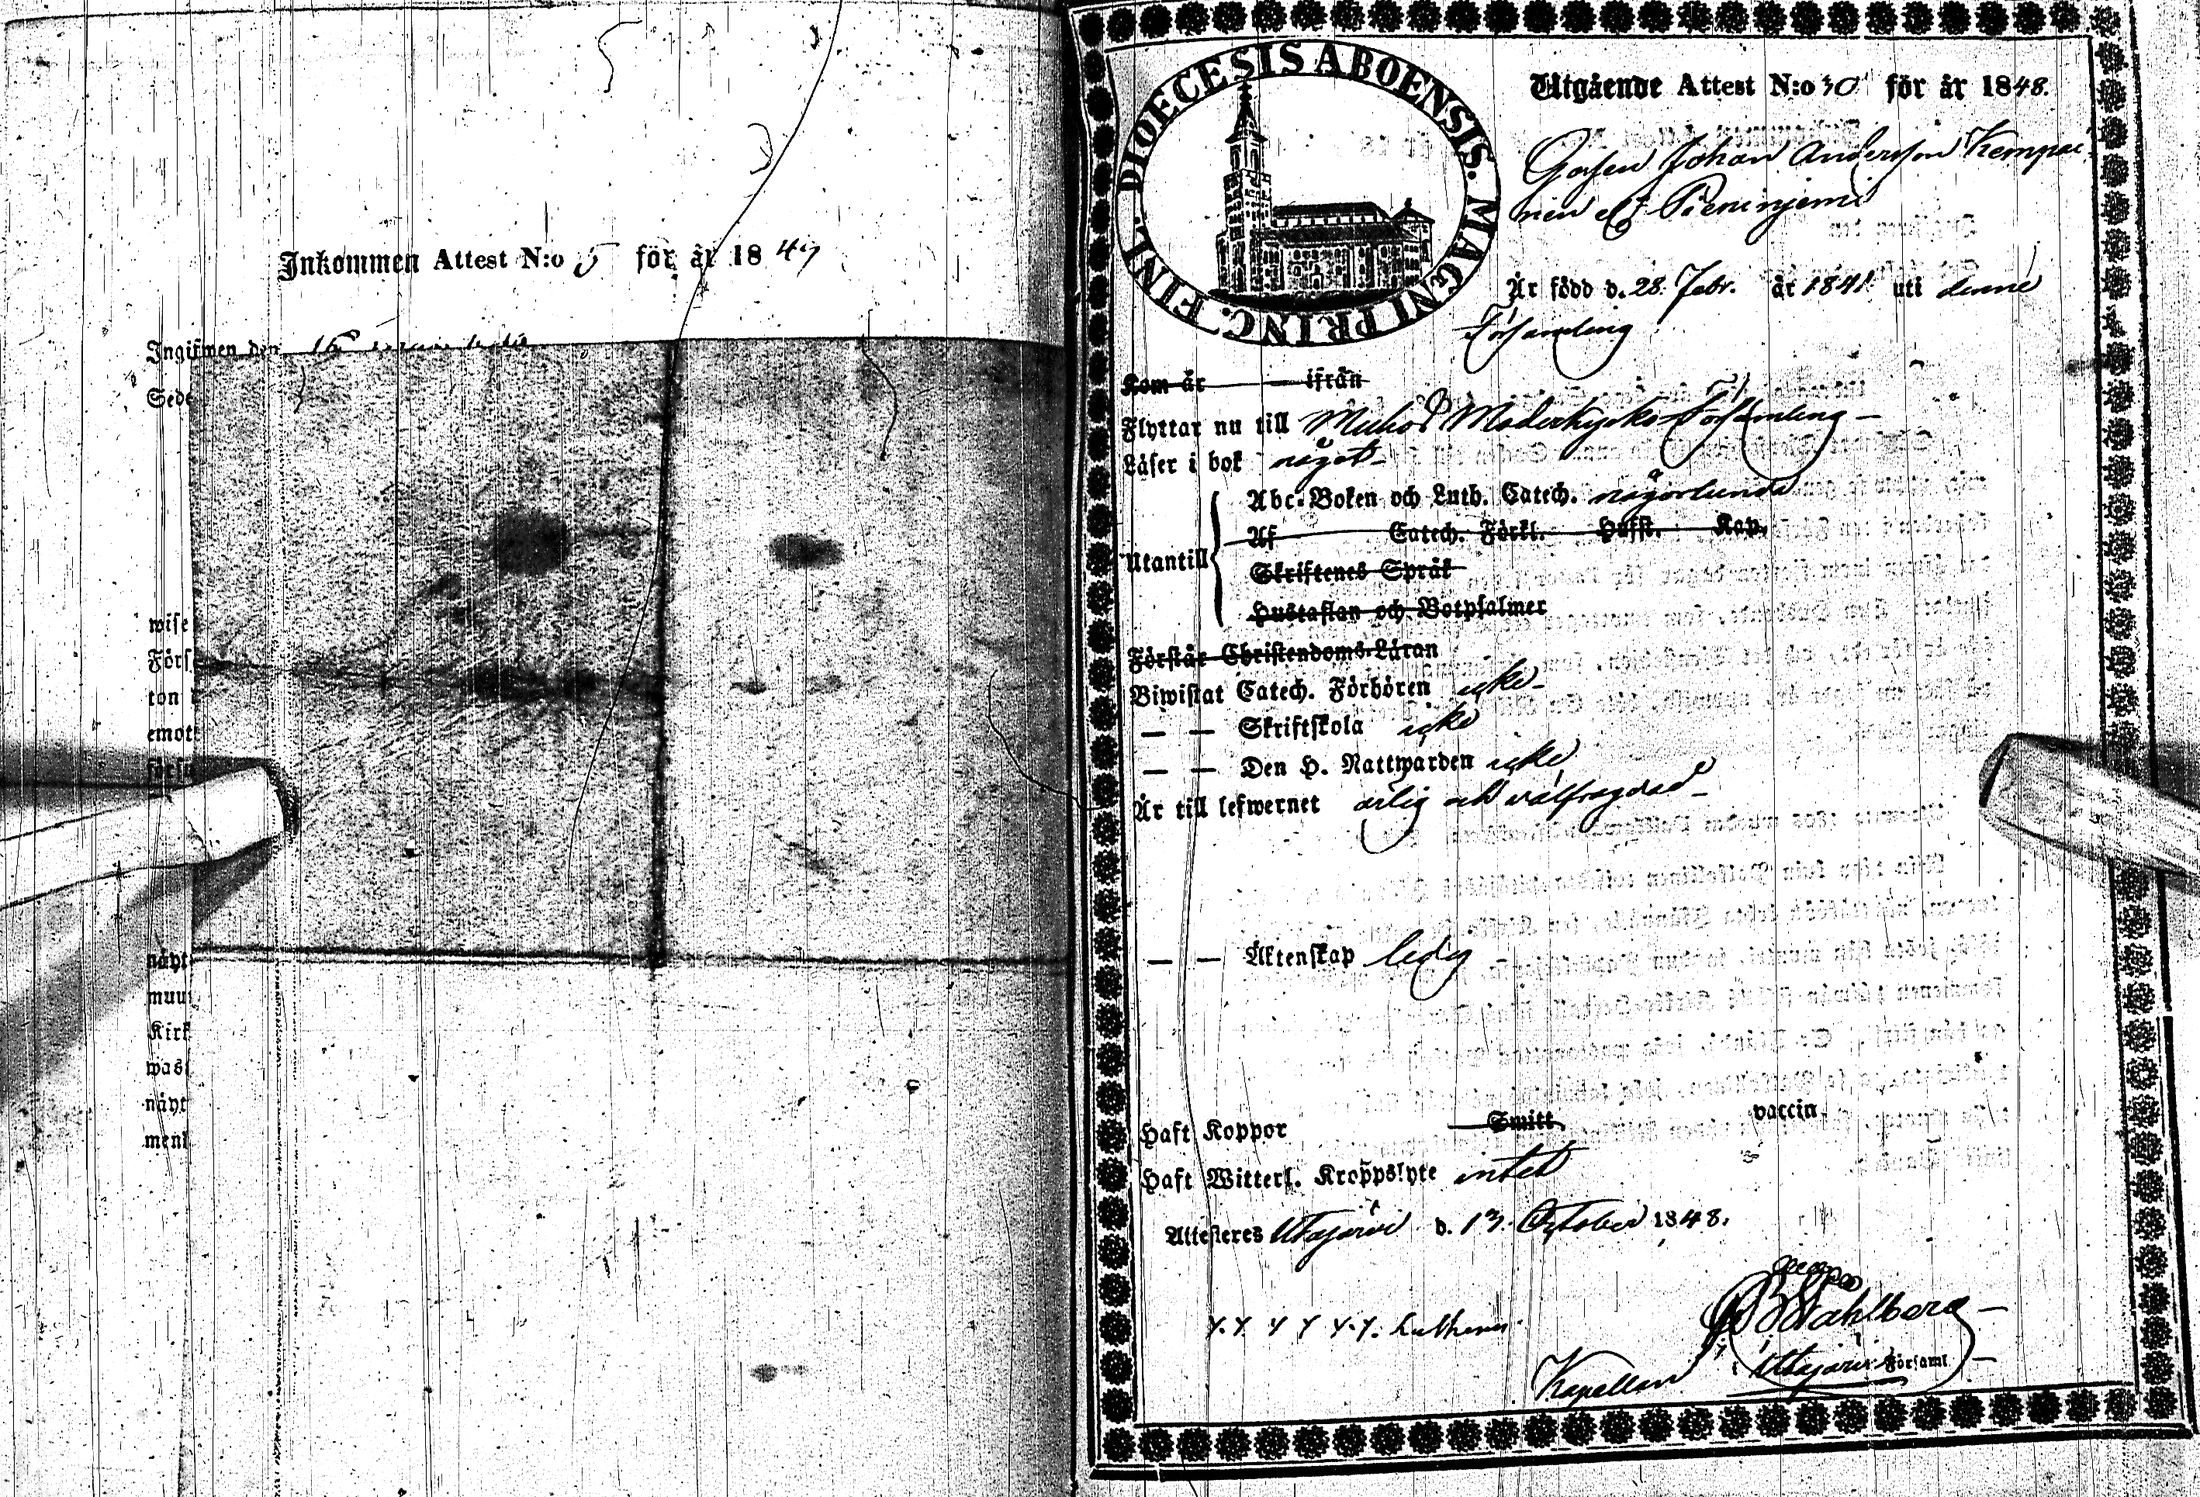 Inkommen Attest N:o 5 för år 1849
Ingifwen den 16
Sede
wise
Förs
ton
emott
förs
näyt
muu
Kirk
was
näyt
men
DIOECESIS ABOENSIS. MAGNI PRINC. FINL.
Utgående Attest N:o 30 för år 1848.
Gossen Johan Andersson Kempai
nen
Är född d. 28. Febr. år 1841 uti denne
Församling
Kom år ifrån
Flyttar nu till Muhos Moderkyrko Församling
Läser i bok något
Utantill
Abc-Boken och Luth. Catech. någorlunda
Af Catech. Förkl. Hufst. Kap.
Skriftenes Språk
Hustaflan och Botpsalmer
Förstår Christendoms-Läran
Biwistat Catech. Förhören icke
— — Skriftskola icke
— — Den H. Nattwarden icke
Är till lefwernet ärlig och välfrägdad
— — Äktenskap ledig
Haft Koppor Smitt vaccin.
Haft Witterl. Kroppslyte intet
Attesteres Utajärvi d. 13. October 1848.
Wahlberg
Kapellan i Utajärvi Församl.